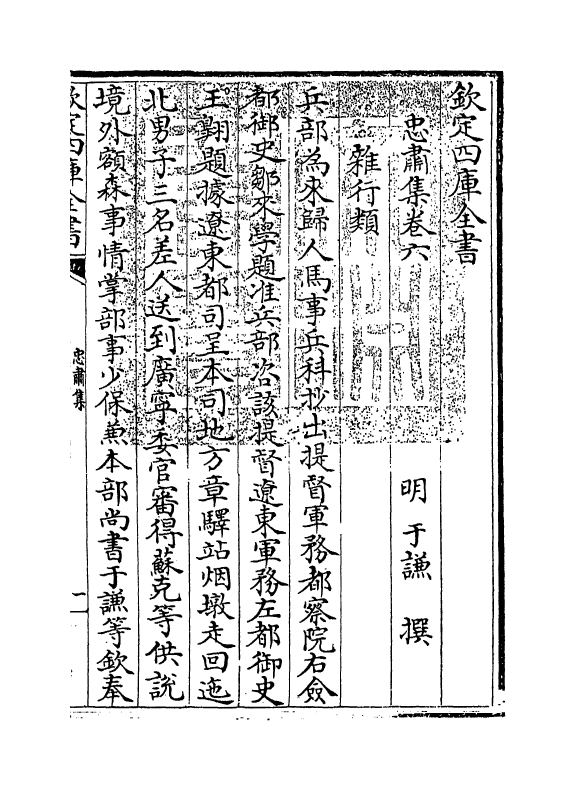 欽定四庫全書
忠肅集卷六　明　于謙　撰
雜行類
兵部為來歸人馬事兵科抄出提督軍務都察院右僉
都御史鄒來學題准兵部咨該提督遼東軍務左都御史
王翺題據遼東都司呈本司地方章驛站烟墩走回迤
北男子三名差人送到廣寧委官審得蘇克等供說
境外額森事情掌部事少保兼本部尚書于謙等欽奉
欽定四庫全書
忠肅集
一